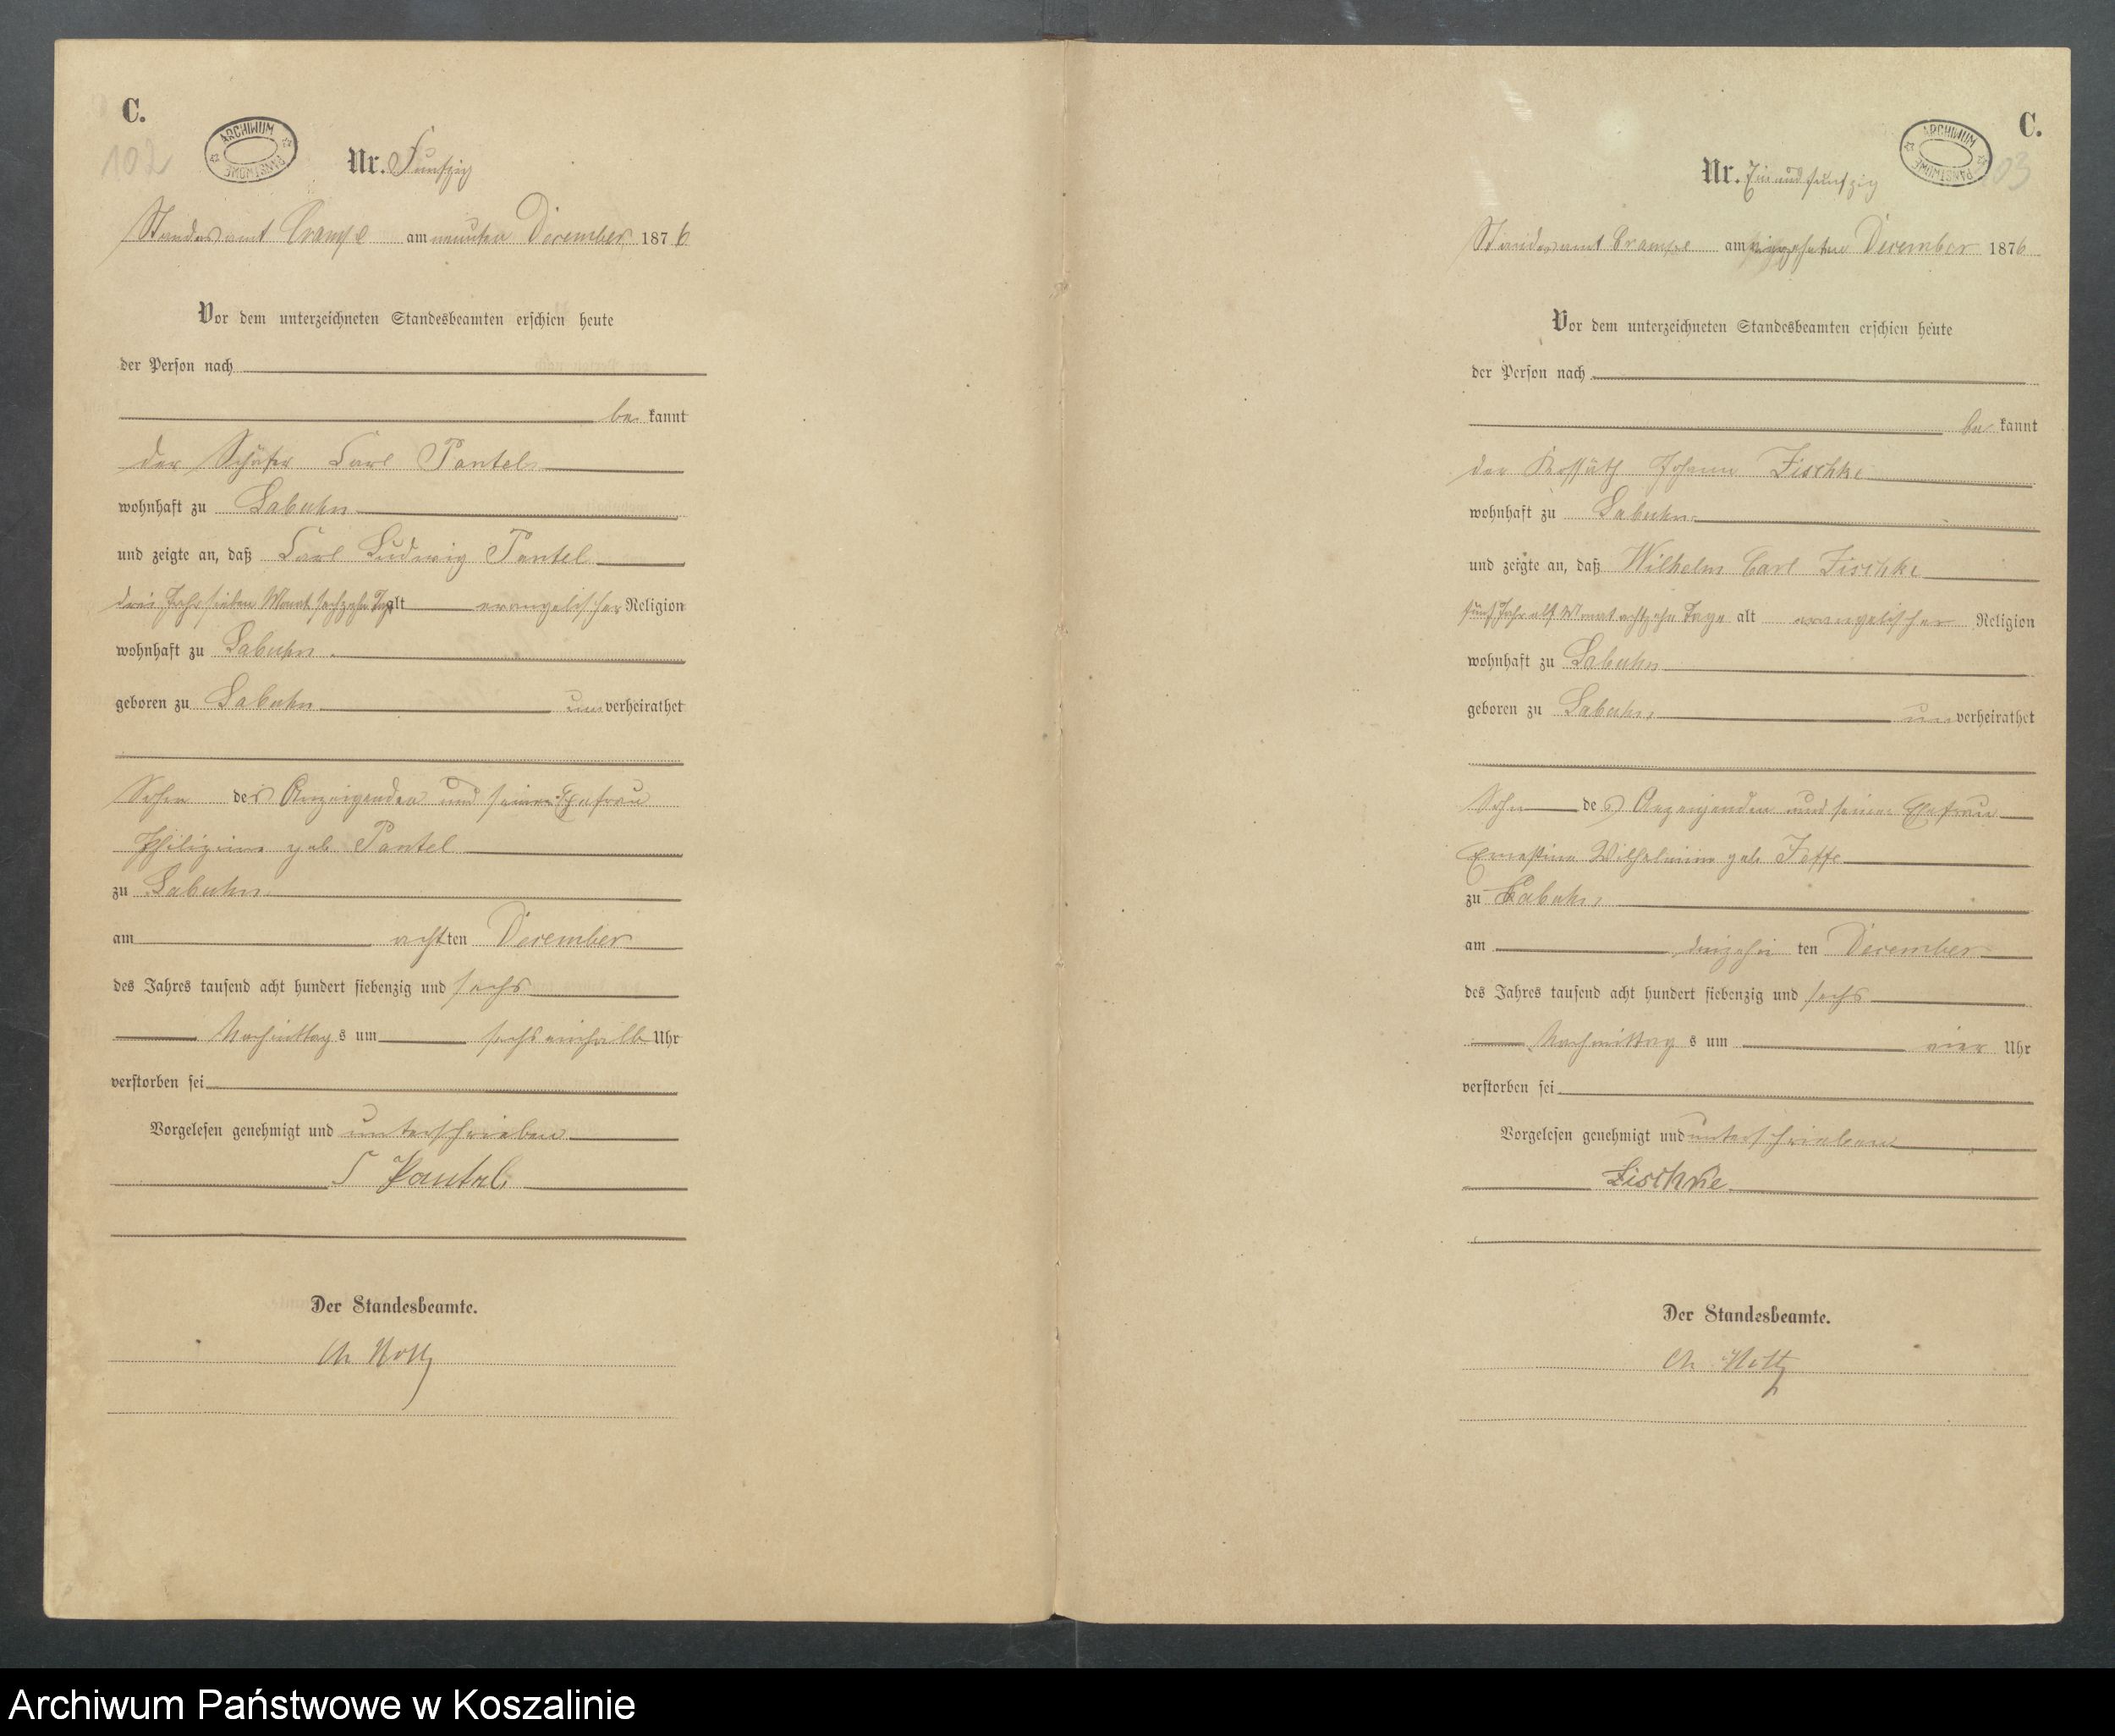 C.
102
ARCHIWUM PAŃSTWOWE
Nr. Funfzig
Standesamt Crampe am neunten December 1876
Vor dem unterzeichneten Standesbeamten erschien heute
der Person nach
be kannt
der Schäfer Carl Pantel
wohnhaft zu Labuhn
und zeigte an, daß Carl Ludwig Pantel
drei Jahr sieben Monat sechzehn Tage alt evangelischer Religion
wohnhaft zu Labuhn
geboren zu Labuhn unverheirathet
Sohn des Anzeigenden und seiner Ehefrau
geb Pantel
zu Labuhn
am achtten December
des Jahres tausend acht hundert siebenzig und sechs
Nachmittags um sechseinhalb Uhr
verstorben sei
Vorgelesen genehmigt und unterschrieben
C Pantel
Der Standesbeamte.
C.
ARCHIWUM PAŃSTWOWE
103
Nr. Einundfunfzig
Standesamt Crampe am vierzehnten December 1876
Vor dem unterzeichneten Standesbeamten erschien heute
der Person nach
be kannt
der Kossäth Johann Zischke
wohnhaft zu Labuhn
und zeigte an, daß Wilhelm Carl Zischke
fünf Jahr elf Monat achtzehn Tage alt evangelischer Religion
wohnhaft zu Labuhn
geboren zu Labuhn unverheirathet
Sohn des Anzeigenden und seiner Ehefrau
Ernestine Wilhelmine geb
zu Labuhn
am dreizehn ten December
des Jahres tausend acht hundert siebenzig und sechs
Nachmittags um vier Uhr
verstorben sei
Vorgelesen genehmigt und unterschrieben
Zischke
Der Standesbeamte.
Archiwum Państwowe w Koszalinie